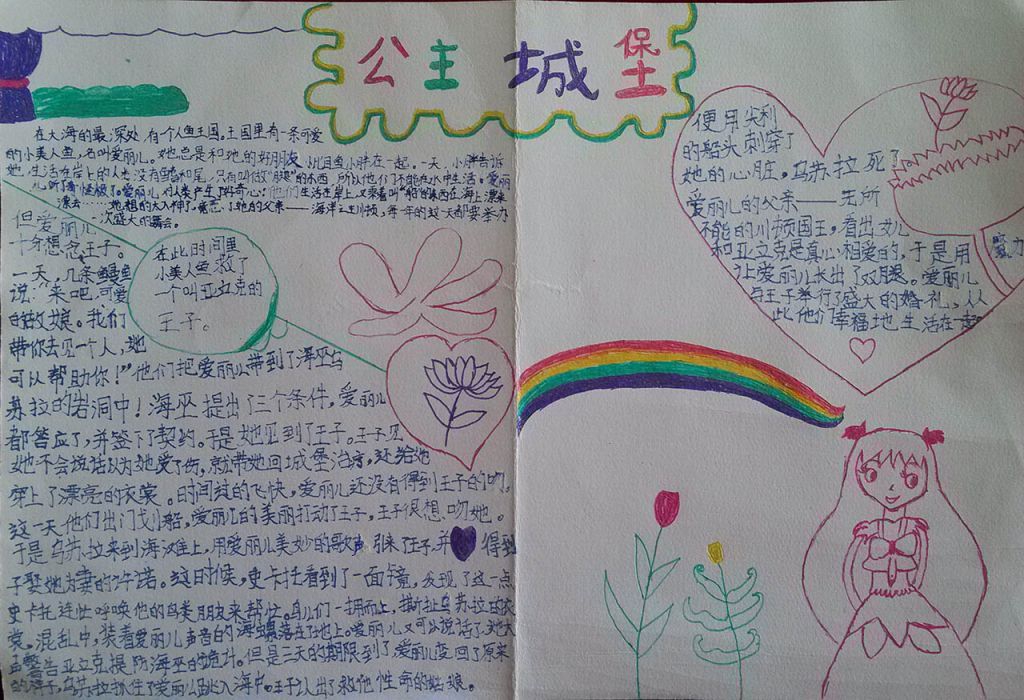 公主城堡
在大海的最深处有个人鱼王国。王国里有一条可爱
的小美人鱼,名叫爱丽儿。她总是和她的好朋友小比目鱼小胖在一起。一天,小胖告诉
她,生活在岸上的人也没有鱼鳍和尾,只有叫做"腿"的东西,所以他们不能在水中生活。爱丽
儿听了奇怪极了。爱丽儿对人类产生了好奇心:他们生活在岸上,又乘着叫"船"的东西在海上漂来
漂去……她想的太入神了,竟忘了她的父亲——海洋之王川顿,每年的这天都要举办
一次盛大的舞会。
在此时间里
小美人鱼救了
一个叫亚立克的
王子。
但爱丽儿
十分想念王子。
一天,几条鳗鱼
说:来吧,可爱
的姑娘。我们
带你去见一个人,她
可以帮助你!"他们把爱丽儿带到了海巫乌
苏拉的岩洞中!海巫提出了三个条件,爱丽儿
都答应了,并签下了契约。于是她见到了王子。王子见
她不会说话以为她受了伤,就带她回城堡治疗,还给她
穿上了漂亮的衣裳。时间过的飞快,爱丽儿还没有得到王子的吻。
这一天他们出门划船,爱丽儿的美丽打动了王子,王子很想吻她。
于是乌苏拉来到海滩上,用爱丽儿美妙的歌声引来了王子,并得到
子娶她为妻的许诺。这时候,史卡托看到了一面镜,发现了这一点
史卡托连忙呼唤他的鸟类朋友来帮忙。鸟儿们一拥而上,撕扯乌苏拉的衣
裳。混乱中,装着爱丽儿声音的海螺落在了地上。爱丽儿又可以说话了,她大
声警告亚立克提防海巫的诡计。但是三天的期限到了,爱丽儿变回了原来
的样子,乌苏拉抓住了爱丽儿跳入海中。王子认出了救他性命的姑娘。
便用尖利
的船头刺穿了
她的心脏。乌苏拉死了
爱丽儿的父亲——无所
不能的川顿国王,看出女儿
和亚立克是真心相爱的,于是用魔力
让爱丽儿长出了双腿。爱丽儿
与王子举行了盛大的婚礼,从
此他们幸福地生活在一起